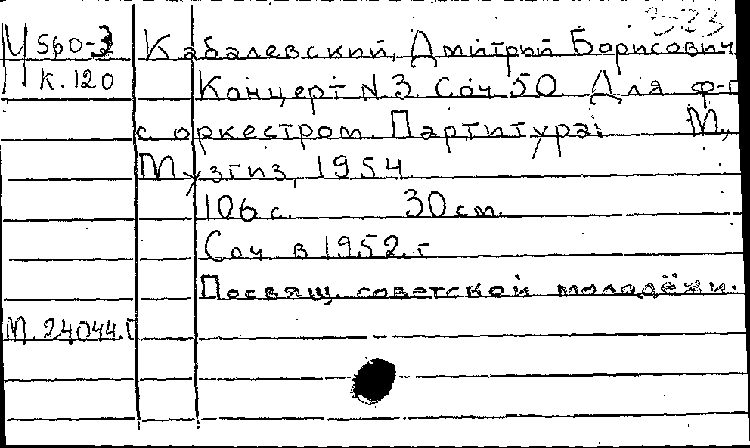 3-23
Ц 560-3
К. 120
Кабалевский, Дмитрий Борисович
Концерт N 3. Соч 50 Для ф-п
с оркестром. Партитура. М.,
Музгиз, 1954
106 с. 30 см.
Соч в 1952 г
Посвящ. советской молодёжи.
М. 24044.Г